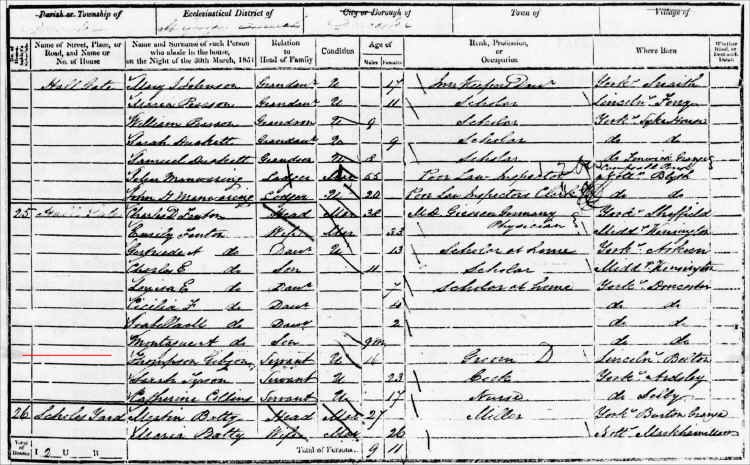 Parish or Township of Ecclesiastical District of City or Borough of Town of Village of
Name of Street, Place, or Road, and Name or No. of House Name and Surname of each Person who abode in the house, on the Night of the 30th March, 1851 Relation to Head of Family Condition Age of Males Females Rank, Profession, or Occupation Where Born Whether Blind, or Deaf-and-Dumb
Hall Gate Mary J Johnson Grandaur U 17 York Snaith
Maria Grandaur U 11 Scholar Lincoln
William Grandson U 9 Scholar York
Sarah Grandaur U 9 Scholar do do
Samuel Grandson U 8 Scholar do Fenwick Grange
John Manwaring Lodger Mar 55 Poor Law Inspector Notts Blyth
John H Manwaring Lodger U 20 Poor Law Inspectors Clerk do do
25 Hall Gate Charles D Head Mar 38 M.D. Giessen Germany Physician York Sheffield
Emily Wife Mar 33 Middx Kensington
Gertrude A do Daur U 13 Scholar at home York Askern
Charles E do Son 11 Scholar Middx Kensington
Louisa E do Daur 7 Scholar at home York Doncaster
Cecilia F do Daur 4 do do
do Daur 2 do do
Montague A do Son 9m do do
Thompson Gibson Servant U 16 Groom D Lincoln
Sarah Tyson Servant U 23 Cook York Ardsley
Catherine Collins Servant U 17 Nurse do Selby
26 Scholes Yard Martin Batty Head Mar 27 Miller York Burton Grange
Maria Batty Wife Mar 26 Nott Markham
Total of Houses I 2 U B Total of Persons 9 11